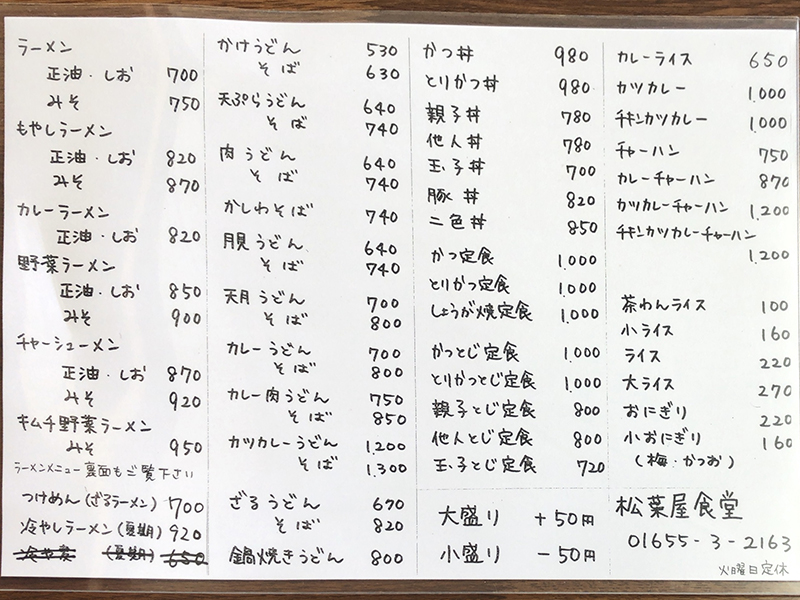 ラーメン
正油・しお 700
みそ 750
もやしラーメン
正油・しお 820
みそ 870
カレーラーメン
正油・しお 820
野菜ラーメン
正油・しお 850
みそ 900
チャーシューメン
正油・しお 870
みそ 920
キムチ野菜ラーメン
みそ 950
ラーメンメニュー裏面もご覧下さい
つけめん(ざるラーメン) 700
冷やしラーメン(夏期) 920
(夏期) 650
かけうどん 530
そば 630
天ぷらうどん 640
そば 740
肉うどん 640
そば 740
かしわそば 740
月見うどん 640
そば 740
天月うどん 700
そば 800
カレーうどん 700
そば 800
カレー肉うどん 750
そば 850
カツカレーうどん 1,200
そば 1,300
ざるうどん 670
そば 820
鍋焼きうどん 800
かつ丼 980
とりかつ丼 980
親子丼 780
他人丼 780
玉子丼 700
豚丼 820
二色丼 850
かつ定食 1,000
とりかつ定食 1,000
しょうが焼定食 1,000
かつとじ定食 1,000
とりかつとじ定食 1,000
親子とじ定食 800
他人とじ定食 800
玉子とじ定食 720
大盛り +50円
小盛り -50円
カレーライス 650
カツカレー 1,000
チキンカツカレー 1,000
チャーハン 750
カレーチャーハン 870
カツカレーチャーハン 1,200
チキンカツカレーチャーハン
1,200
茶わんライス 100
小ライス 160
ライス 220
大ライス 270
おにぎり 220
小おにぎり 160
(梅・かつお)
松葉屋食堂
01655-3-2163
火曜日定休